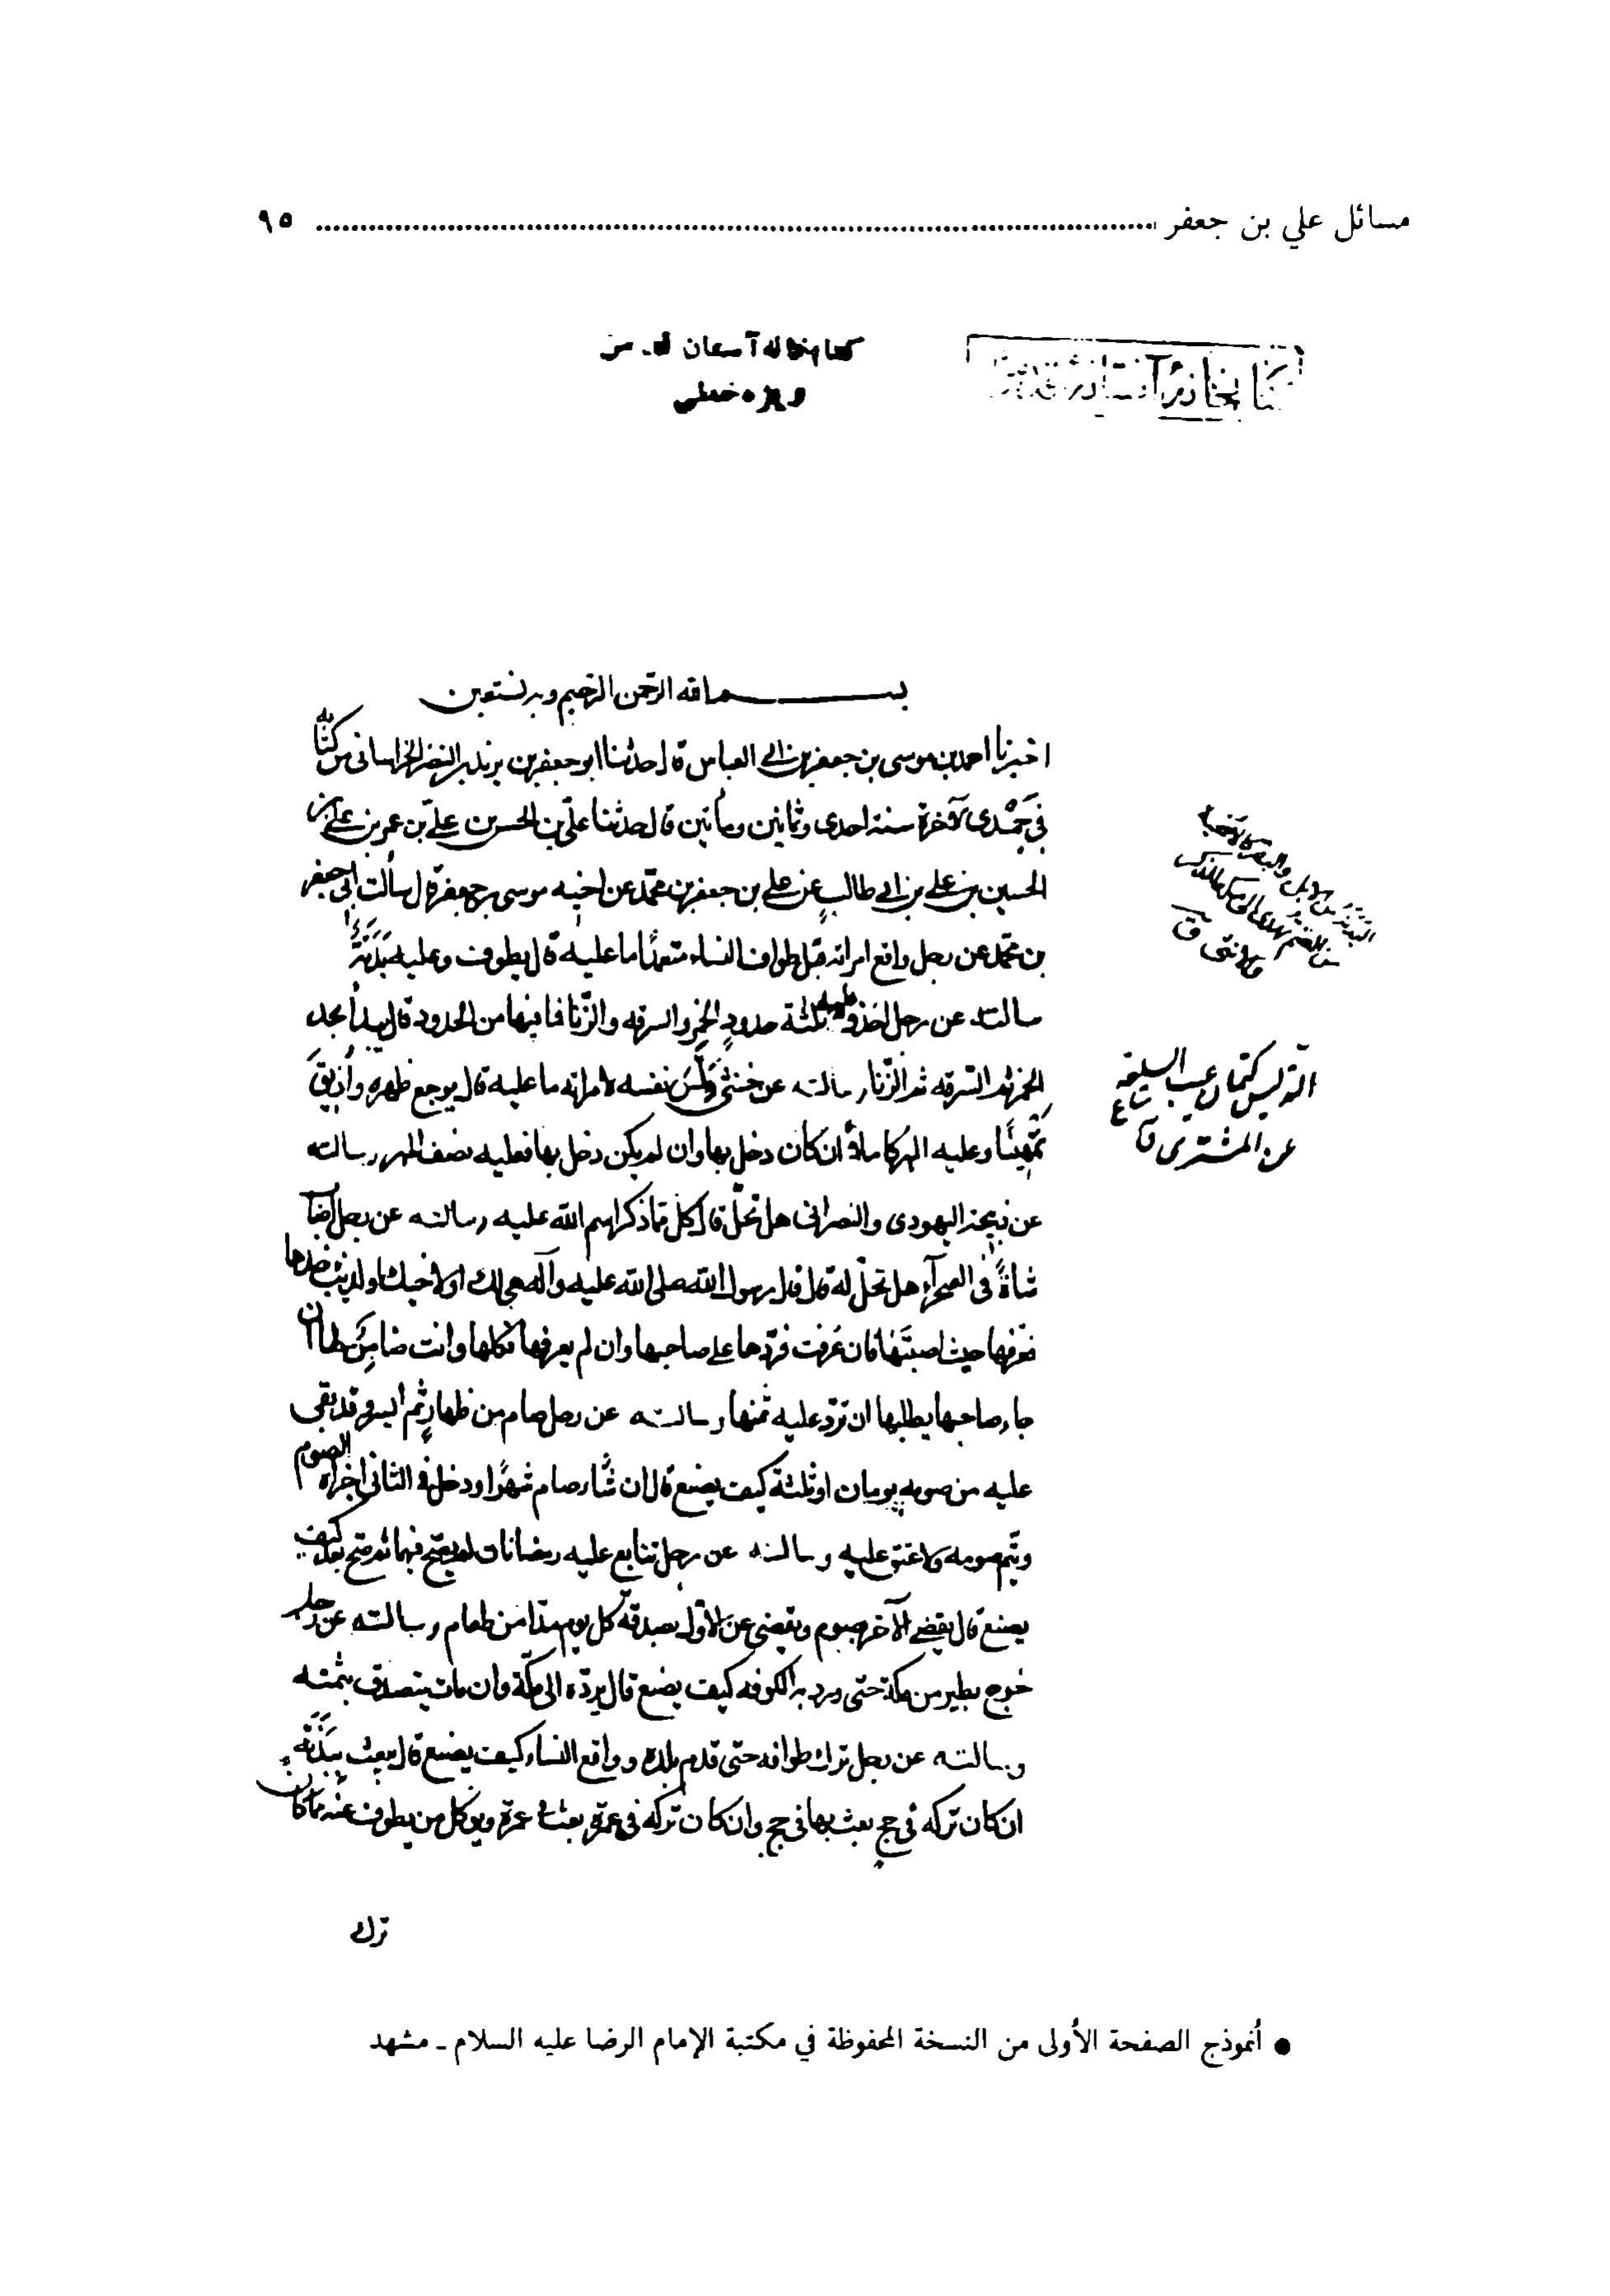 مسائل علي بن جعفر ........................................ ٩٥
ويژه خطي
بسم الله الرحمن الرحيم وبه نستعين
اخبرنا احمد بن موسى بن جعفر بن ابي العباس قال حدثنا ابو جعفر بن يزيد بن النضر الخراساني من كتابه
في جمدى الآخرة سنة احدى وثمانين ومأتين قال حدثنا علي بن الحسن بن علي بن عمر بن علي بن
الحسين بن علي بن ابي طالب عن علي بن جعفر بن محمد عن اخيه موسى بن جعفر قال سألت ابي جعفر
بن محمد عن رجل واقع امراته قبل طواف النساء متعمدًا ما عليه قال يطوف وعليه بَدَنَةٌ
سالته عن رجل اخذ وعليه ثلثة حدودٍ الخمر والسرقه والزنا فما فيها من الحدود قال يبدأ بحد
الخمر ثم السرقه ثم الزنا وسالته عن خنثى دَلَّسَ نفسه لامراته ما عليه قال يوجع ظهره واذيق
تمهينًا وعليه المهر كاملًا ان كان دخل بها وان لم يكن دخل بها فعليه نصف المهر وسالته
عن ذبيحة اليهودى والنصرانى هل تحلّ قال كل مما ذكر اسم الله عليه وسالته عن رجل اصاب
شاةً فى الصحرآء هل تحلّ له قال قال رسول الله صلى الله عليه وآله هى لك او لاخيك او للذئب خذها
فعرفها حيث اصبتَها فان عُرفت فردّها على صاحبها وان لم يعرفها فكلها وانت ضامِنٌ لها ان
جاء صاحبها يطلبها ان تردّ عليه ثمنها وسالته عن رجل صام من ظهارٍ ثم ايسر وقد بقى
عليه من صومه يومان او ثلثة كيف يصنع قال ان شاء صام شهرًا ودخل فى الثانى اجزاه الصوم
ويتم صومه ولا عتق عليه وسالته عن رجل تتابع عليه رمضانات لم يصح فيها ثم صح بعد كيف
يصنع قال يقضى الآخر بصوم ويقضى عن الاول بصدقة كل يوم مدّا من طعام وسالته عن رجل
خرج بطير من مكة حتى ورد به الكوفه كيف يصنع قال يردّه الى مكّة وان مات يتصدق بثمنه
وسالته عن رجل ترك طوافه حتى قدم بلده وواقع النساء كيف يصنع قال يبعث ببَدَنَةٍ
ان كان تركه فى حج بعث بها فى حج وان كان تركه فى عمرة بعث فى عمرة ويوكل من يطوف عنه ما كان
ترك
التدليس كتمان عيب السلعة
عن المشترى ق
● أنموذج الصفحة الأولى من النسخة المحفوظة في مكتبة الإمام الرضا عليه السلام ـ مشهد